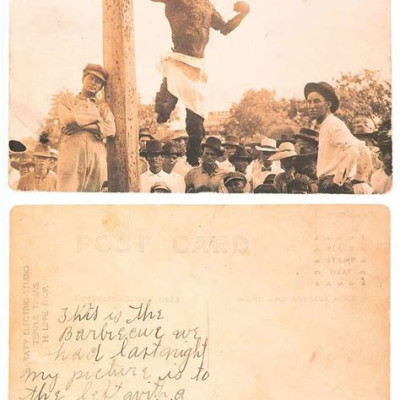 POST CARD
PLACE
STAMP
HERE
KATY ELECTRIC STUDIO
TEMPLE TEXAS
H. LIPPE PROP.
This is the
Barbecue we
had last night
my picture is to
the left with a